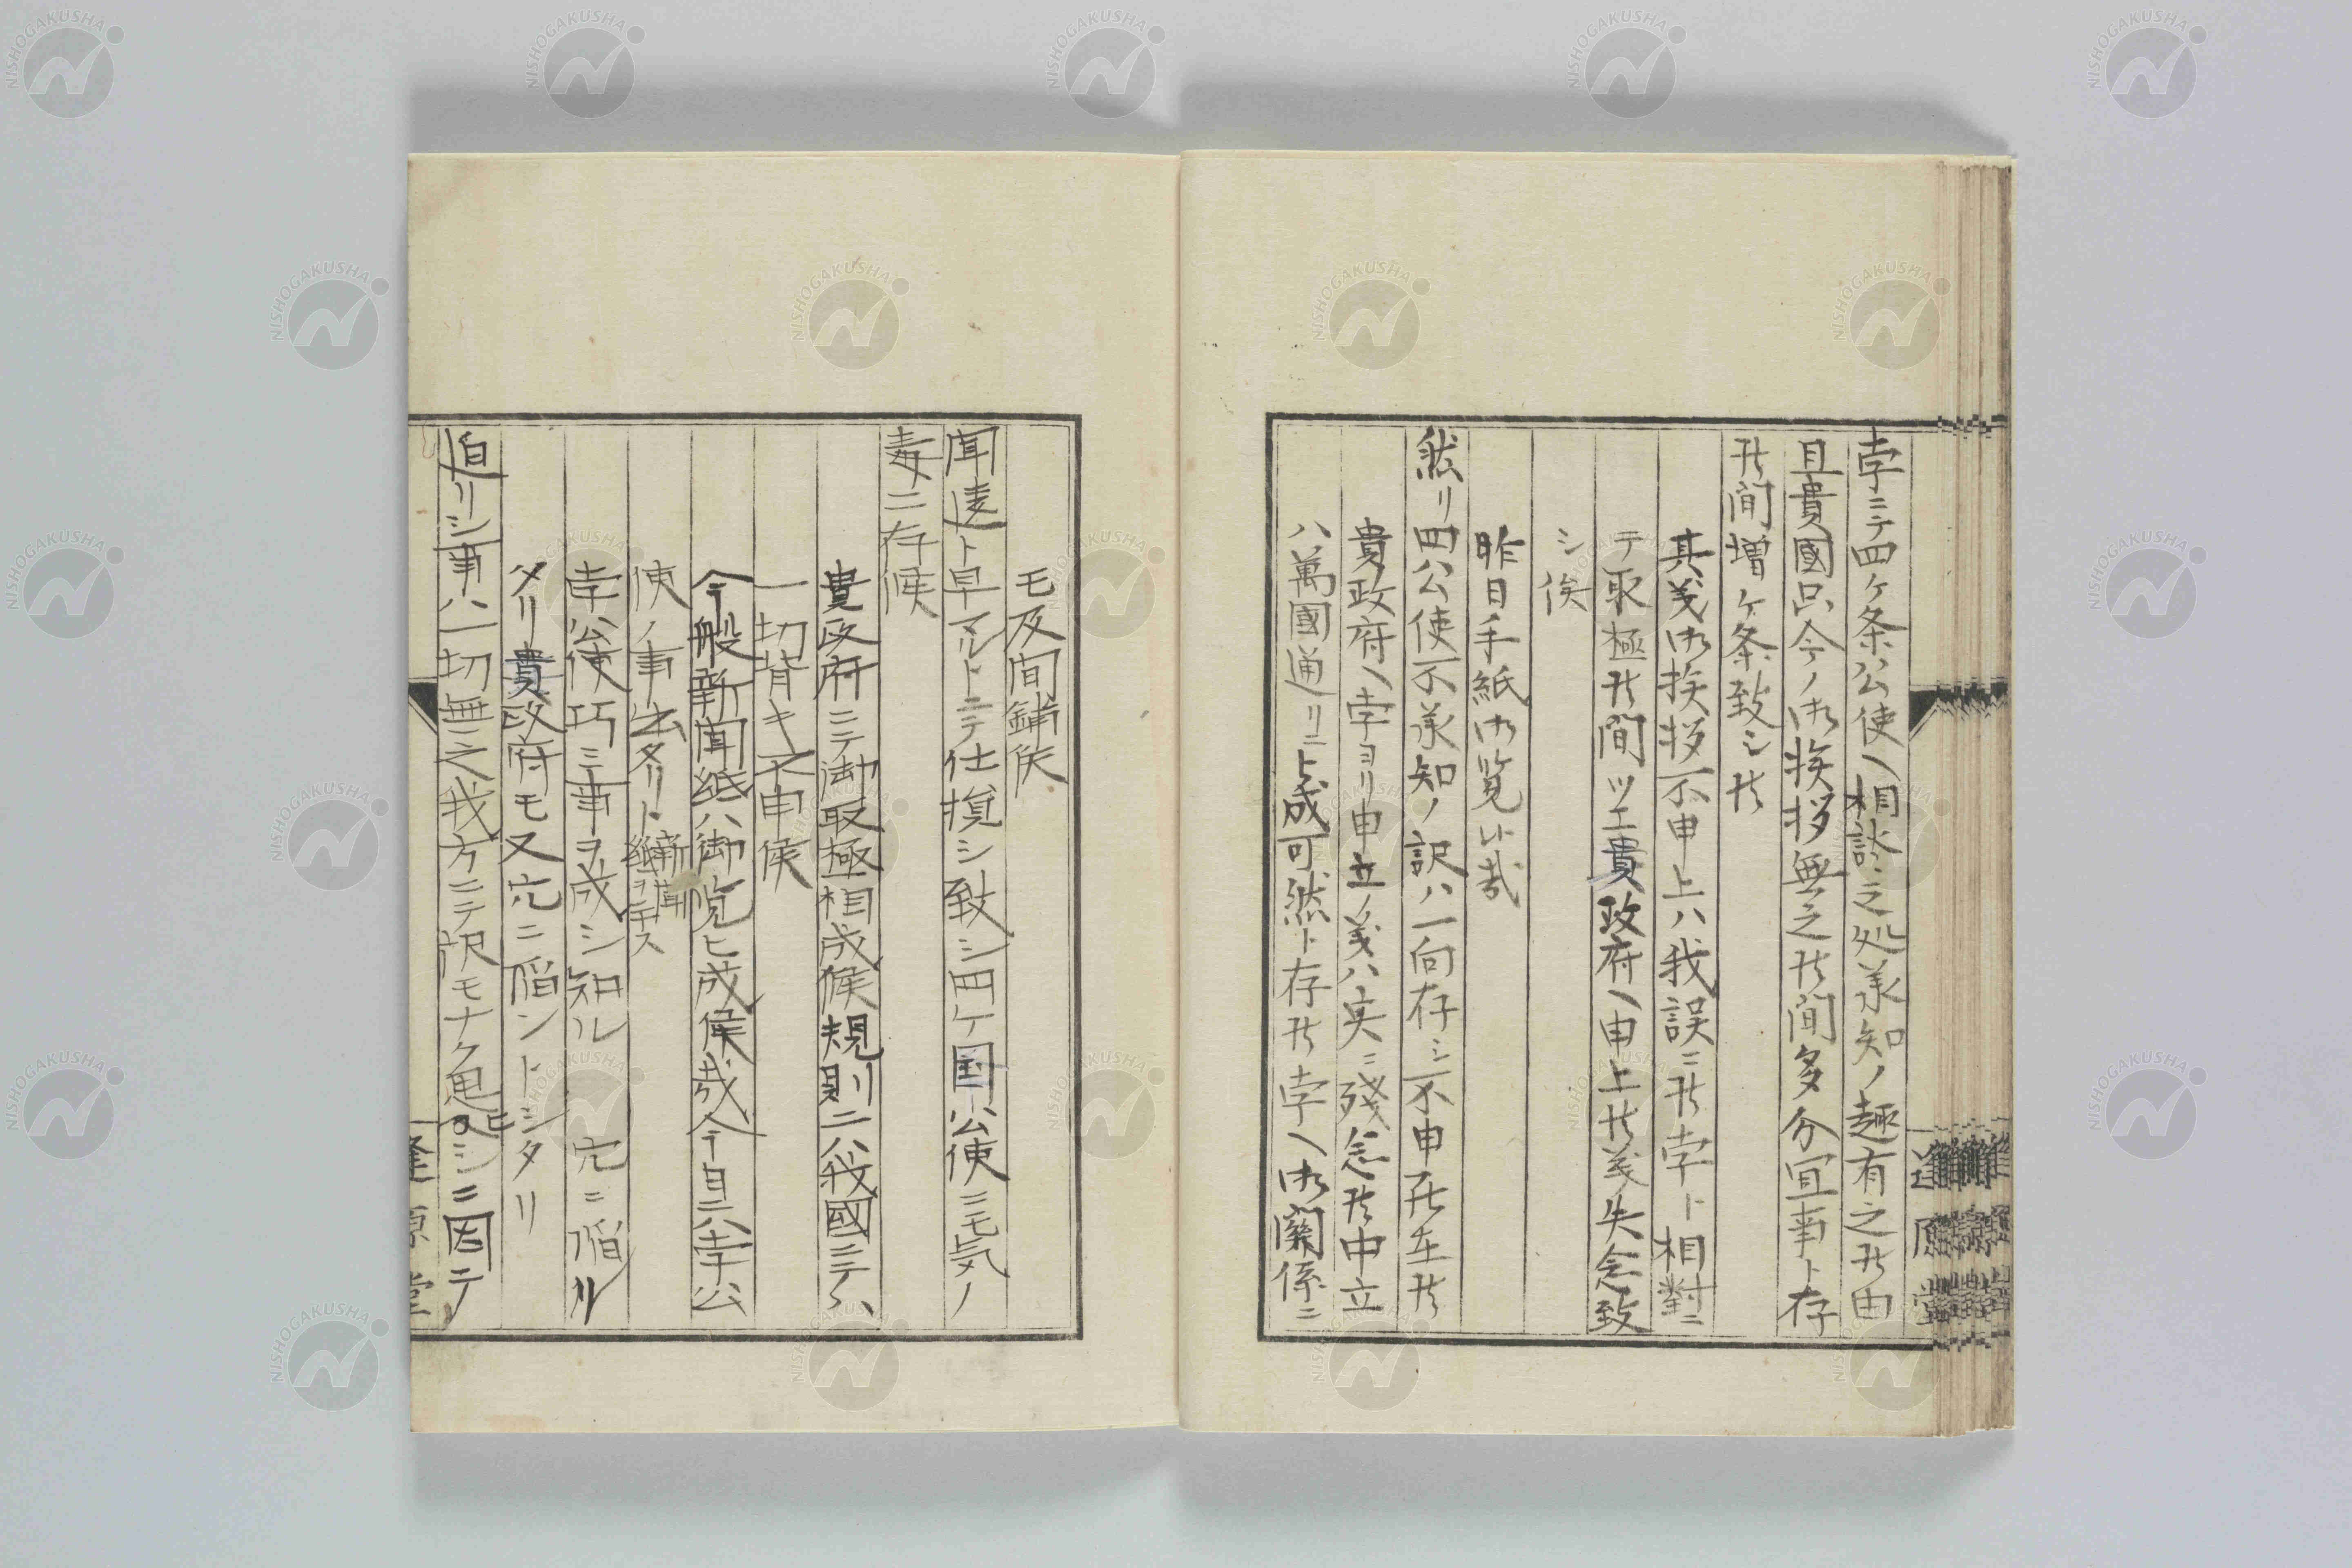 孛ニテ四ケ条公使ヘ相談之処承知ノ趣有之候由
且貴國只今ノ御挨拶無之候間多分宜事ト存
候間増ケ条致シ候
其義御挨拶不申上ハ我誤ニ候孛ト相對ニ
テ取極候間ツエ貴政府ヘ申上候義失念致
シ候
昨日手紙御覧候哉
然リ四公使不承知ノ訳ハ一向存シ不申罷在候
貴政府ヘ孛ヨリ申立ノ義ハ実ニ残念候中立
ハ萬國通リニ上成可然ト存候孛ヘ御關係ニ
モ及間鋪候
聞違ト早マルトニテ仕損シ致シ四ケ国公使ニモ気ノ
毒ニ存候
貴政府ニテ御取極相成候規則ニハ我國ニテハ
一切背キ不申候
今般新聞紙ハ御覧ヒ成候哉今日ニハ孛公
使ノ事出タリト新聞紙ヲ示ス
孛公使巧ミ事ヲ成シ知ル 穴ニ陥ル
タリ貴政府モ又穴ニ陥ントシタリ
迫リシ事ハ一切無之我方ニテ訳モナク思ヒシニ因テ
逢原堂